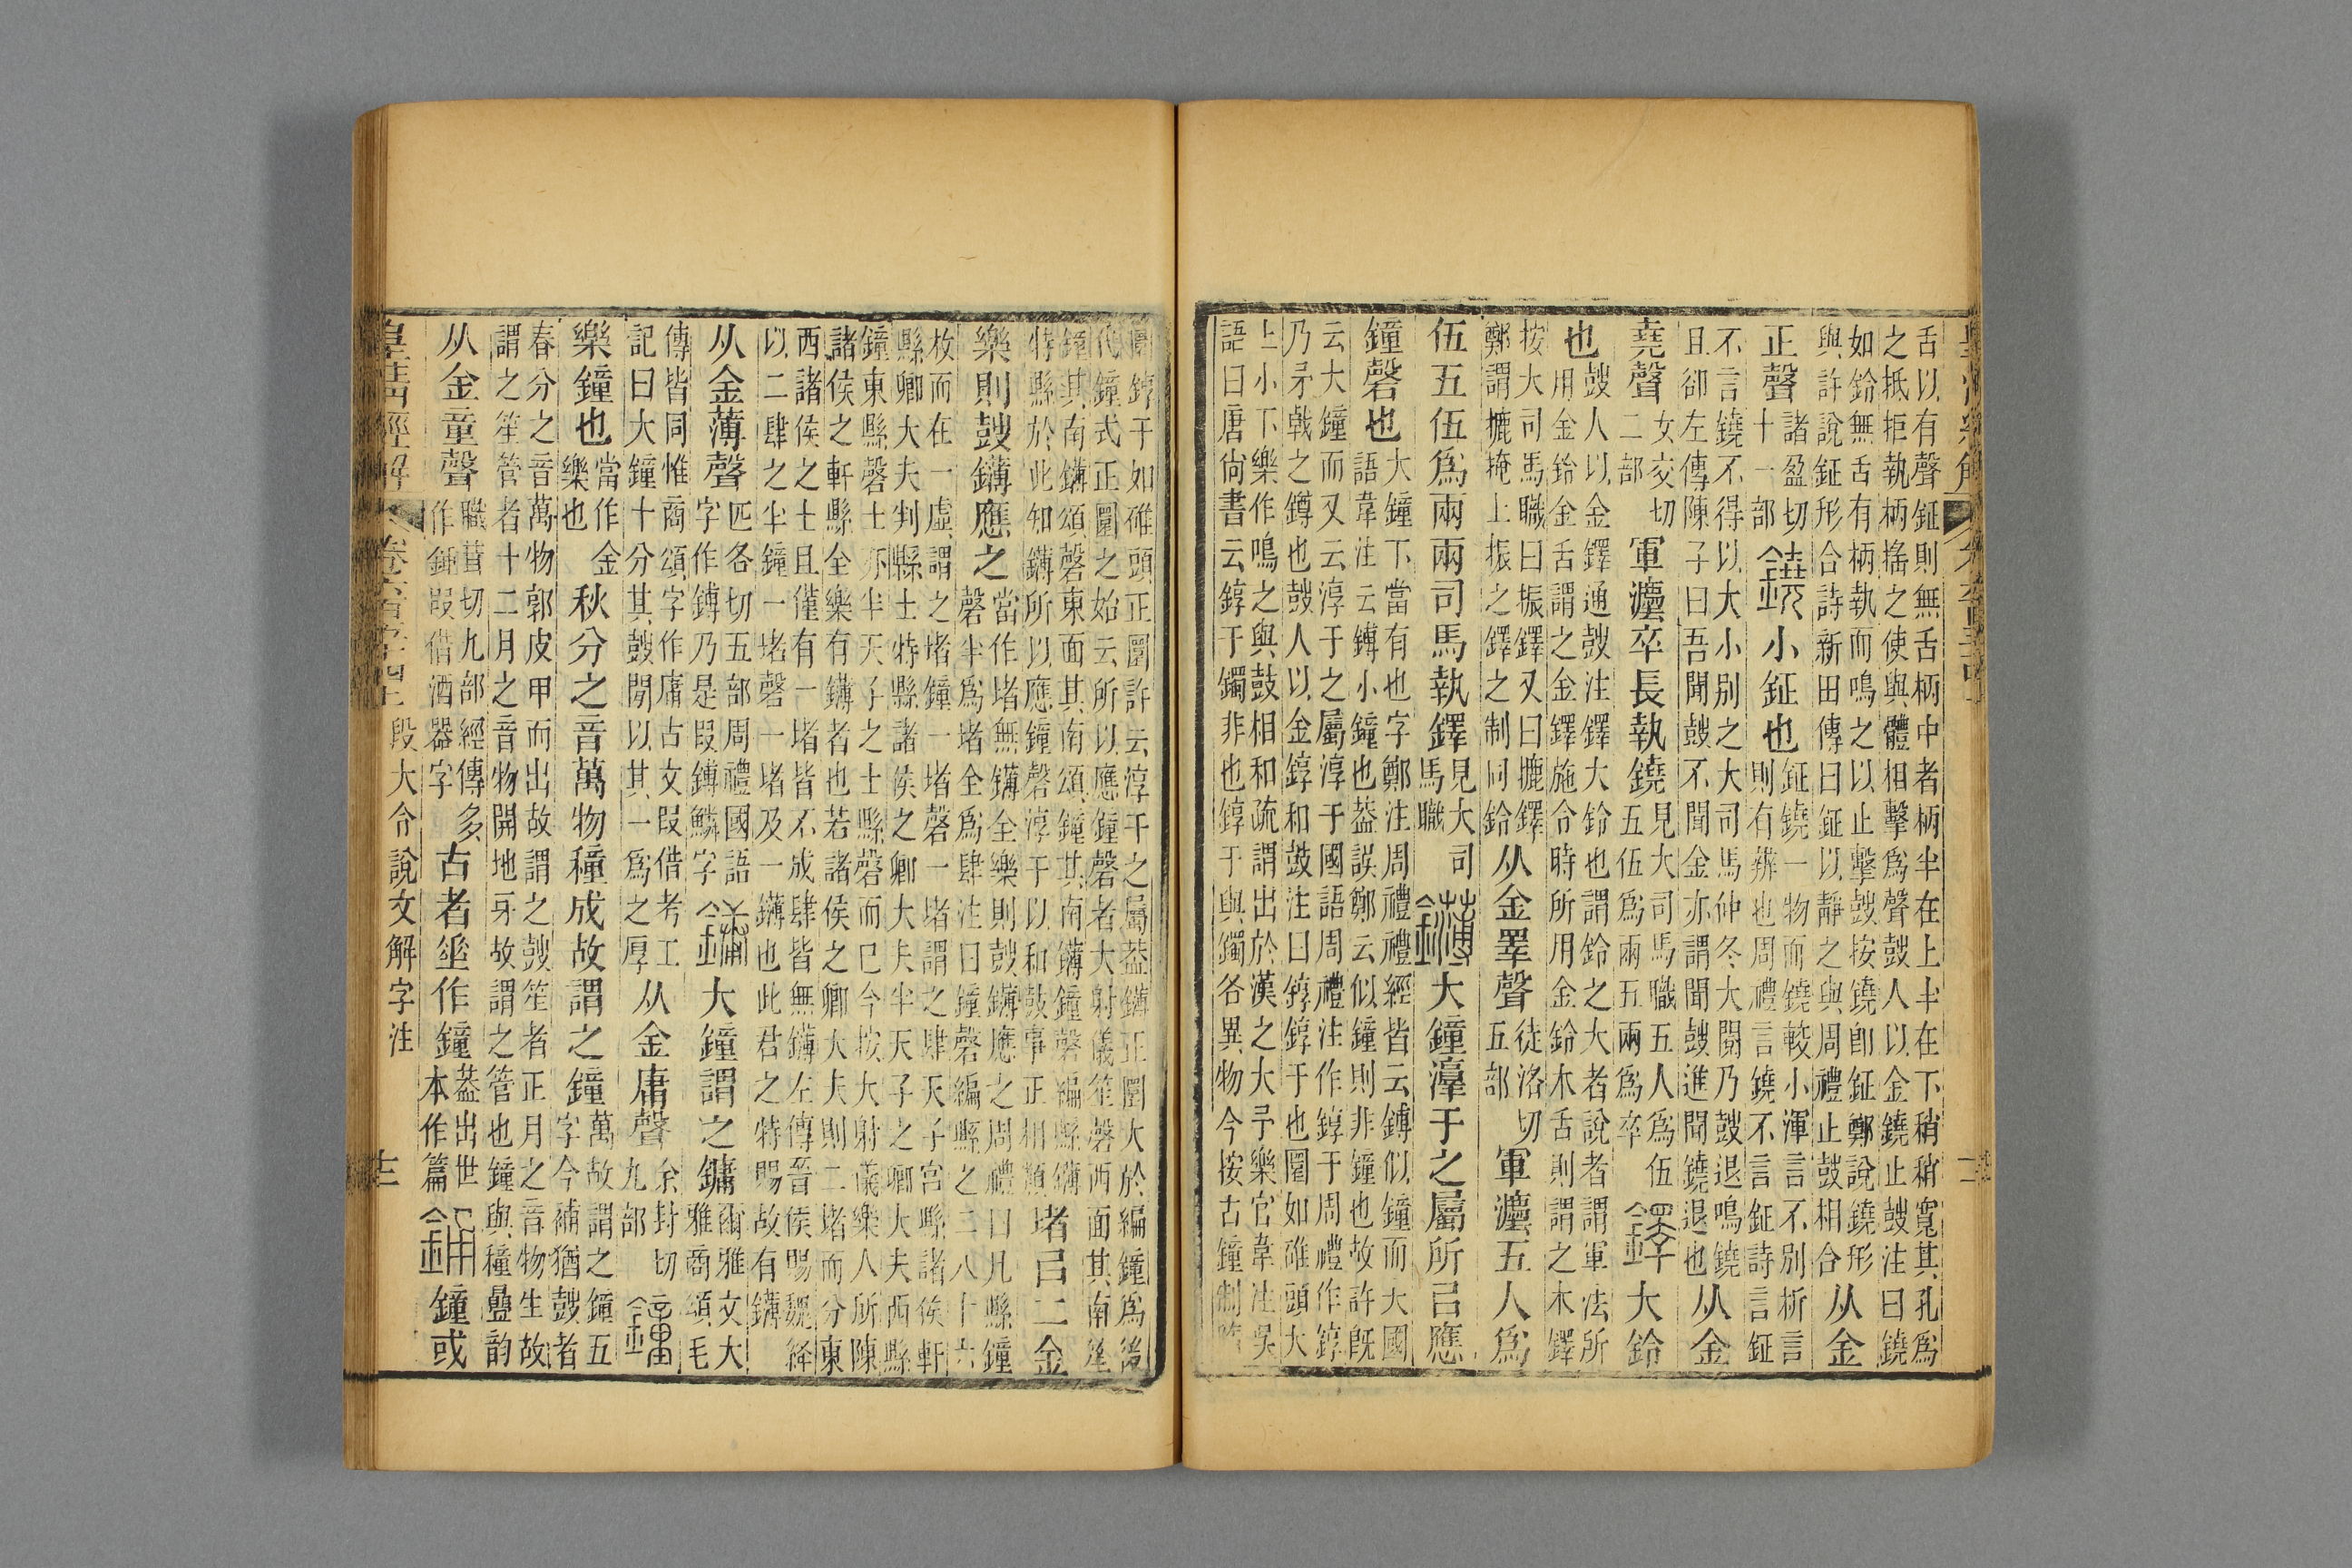 舌以有聲鉦則無舌柄中者柄半在上半在下稍稍寬其孔爲
之抵拒執柄搖之使與體相擊爲聲鼓人以金鐃止鼓注曰鐃
如鈴無舌有柄執而鳴之以止擊鼓按鐃卽鉦鄭說鐃形
與許說鉦形合詩新田傳曰鉦以靜之與周禮止鼓相合从金
正聲諸盈切十一部鐃小鉦也鉦鐃一物而鐃較小渾言不別析言則有辨也周禮言鐃不言鉦詩言鉦
不言鐃不得以大小別之大司馬仲冬大閱乃鼓退鳴鐃
且卻左傳陳子曰吾聞鼓不聞金亦謂聞鼓進聞鐃退也从金
堯聲女交切二部軍灋卒長執鐃見大司馬職五人爲伍五伍爲兩五兩爲卒鐸大鈴
也鼓人以金鐸通鼓注鐸大鈴也謂鈴之大者說者謂軍法所用金鈴金舌謂之金鐸施令時所用金鈴木舌則謂之木鐸
按大司馬職曰振鐸又曰摝鐸鄭謂摝掩上振之鐸之制同鈴从金睪聲徒洛切五部軍灋五人爲
伍五伍爲兩兩司馬執鐸見大司馬職鑮大鐘𣹶于之屬所㠯應
鐘磬也大鐘下當有也字鄭注周禮禮經皆云鎛似鐘而大國語韋注云鎛小鐘也葢誤鄭云似鐘則非鐘也故許旣
云大鐘而又云淳于之屬淳于國語周禮注作錞于周禮作錞
乃矛戟之鐏也鼓人以金錞和鼓注曰錞錞于也圜如碓頭大
上小下樂作鳴之與鼓相和疏謂出於漢之大予樂官韋注吳
語曰唐尙書云錞于鐲非也錞于與鐲各異物今按古鐘制
圜錞于如碓頭正圜許云淳于之屬葢鑮正圜大於編鐘爲後
代鐘式正圜之始云所以應鐘磬者大射儀笙磬西面其南笙
鐘其南鑮頌磬東面其南頌鐘其南鑮鐘磬編縣鑮
特縣於此知鑮所以應鐘磬淳于以和鼓事正相類堵㠯二金
樂則鼓鑮應之當作堵無鑮全樂則鼓鑮應之周禮曰凡縣鐘磬半爲堵全爲肆注曰鐘磬編縣之二八十六
枚而在一虡謂之堵鐘一堵磬一堵謂之肆天子宮縣諸侯軒
縣卿大夫判縣士特縣諸侯之卿大夫半天子之卿大夫西縣
鐘東縣磬士亦半天子之士縣磬而已今按大射儀樂人所陳
諸侯之軒縣全樂有鑮者也若諸侯之卿大夫則二堵而分東
西諸侯之士且僅有一堵皆不成肆皆無鑮左傳晉侯賜魏絳
以二肆之半鐘一堵磬一堵及一鑮也此君之特賜故有鑮
从金薄聲匹各切五部周禮國語字作鎛乃是叚鎛鱗字鏞大鐘謂之鏞爾雅文大雅商頌毛
傳皆同惟商頌字作庸古文叚借考工記曰大鐘十分其鼓閒以其一爲之厚从金庸聲余封切九部鐘
樂鐘也當作金樂也秋分之音萬物穜成故謂之鐘萬故謂之鐘五字今補猶鼓者
春分之音萬物郭皮甲而出故謂之鼓笙者正月之音物生故
謂之笙管者十二月之音物開地牙故謂之管也鐘與穜曡韵
从金童聲職茸切九部經傳多作鍾叚借酒器字古者𡍮作鐘葢出世本作篇銿鐘或
段大令說文解字注